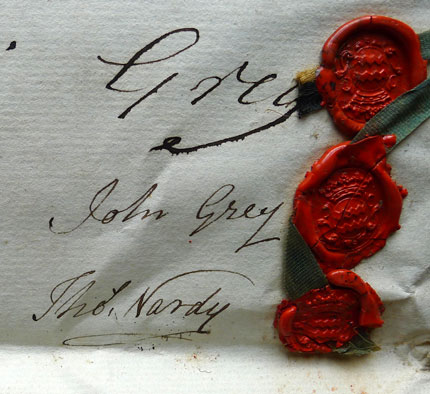 Grey
John Grey
Tho.s Nardy